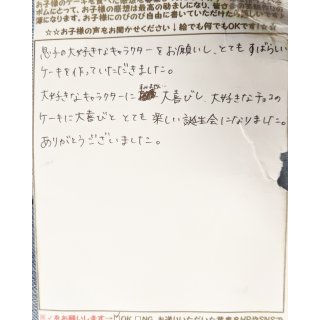 お子様のケーキを食べた感想を
ボムにとって、お子様の感想は最高の励ましになり、皆さまの笑顔が
源になります。お子様にのびのび自由に書いていただけたら嬉しいです!
☆☆お子様の声をお聞かせください!絵でも何でもOKです!☆☆
息子の大好きなキャラクターをお願いし、とても すばらしい
ケーキを作っていただきました。
大好きなキャラクターに 大喜びし、大好きなチョコの
ケーキに大喜びと とても 楽しい誕生会になりました。
ありがとうございました。
✓をお願いします→☑OK □NG